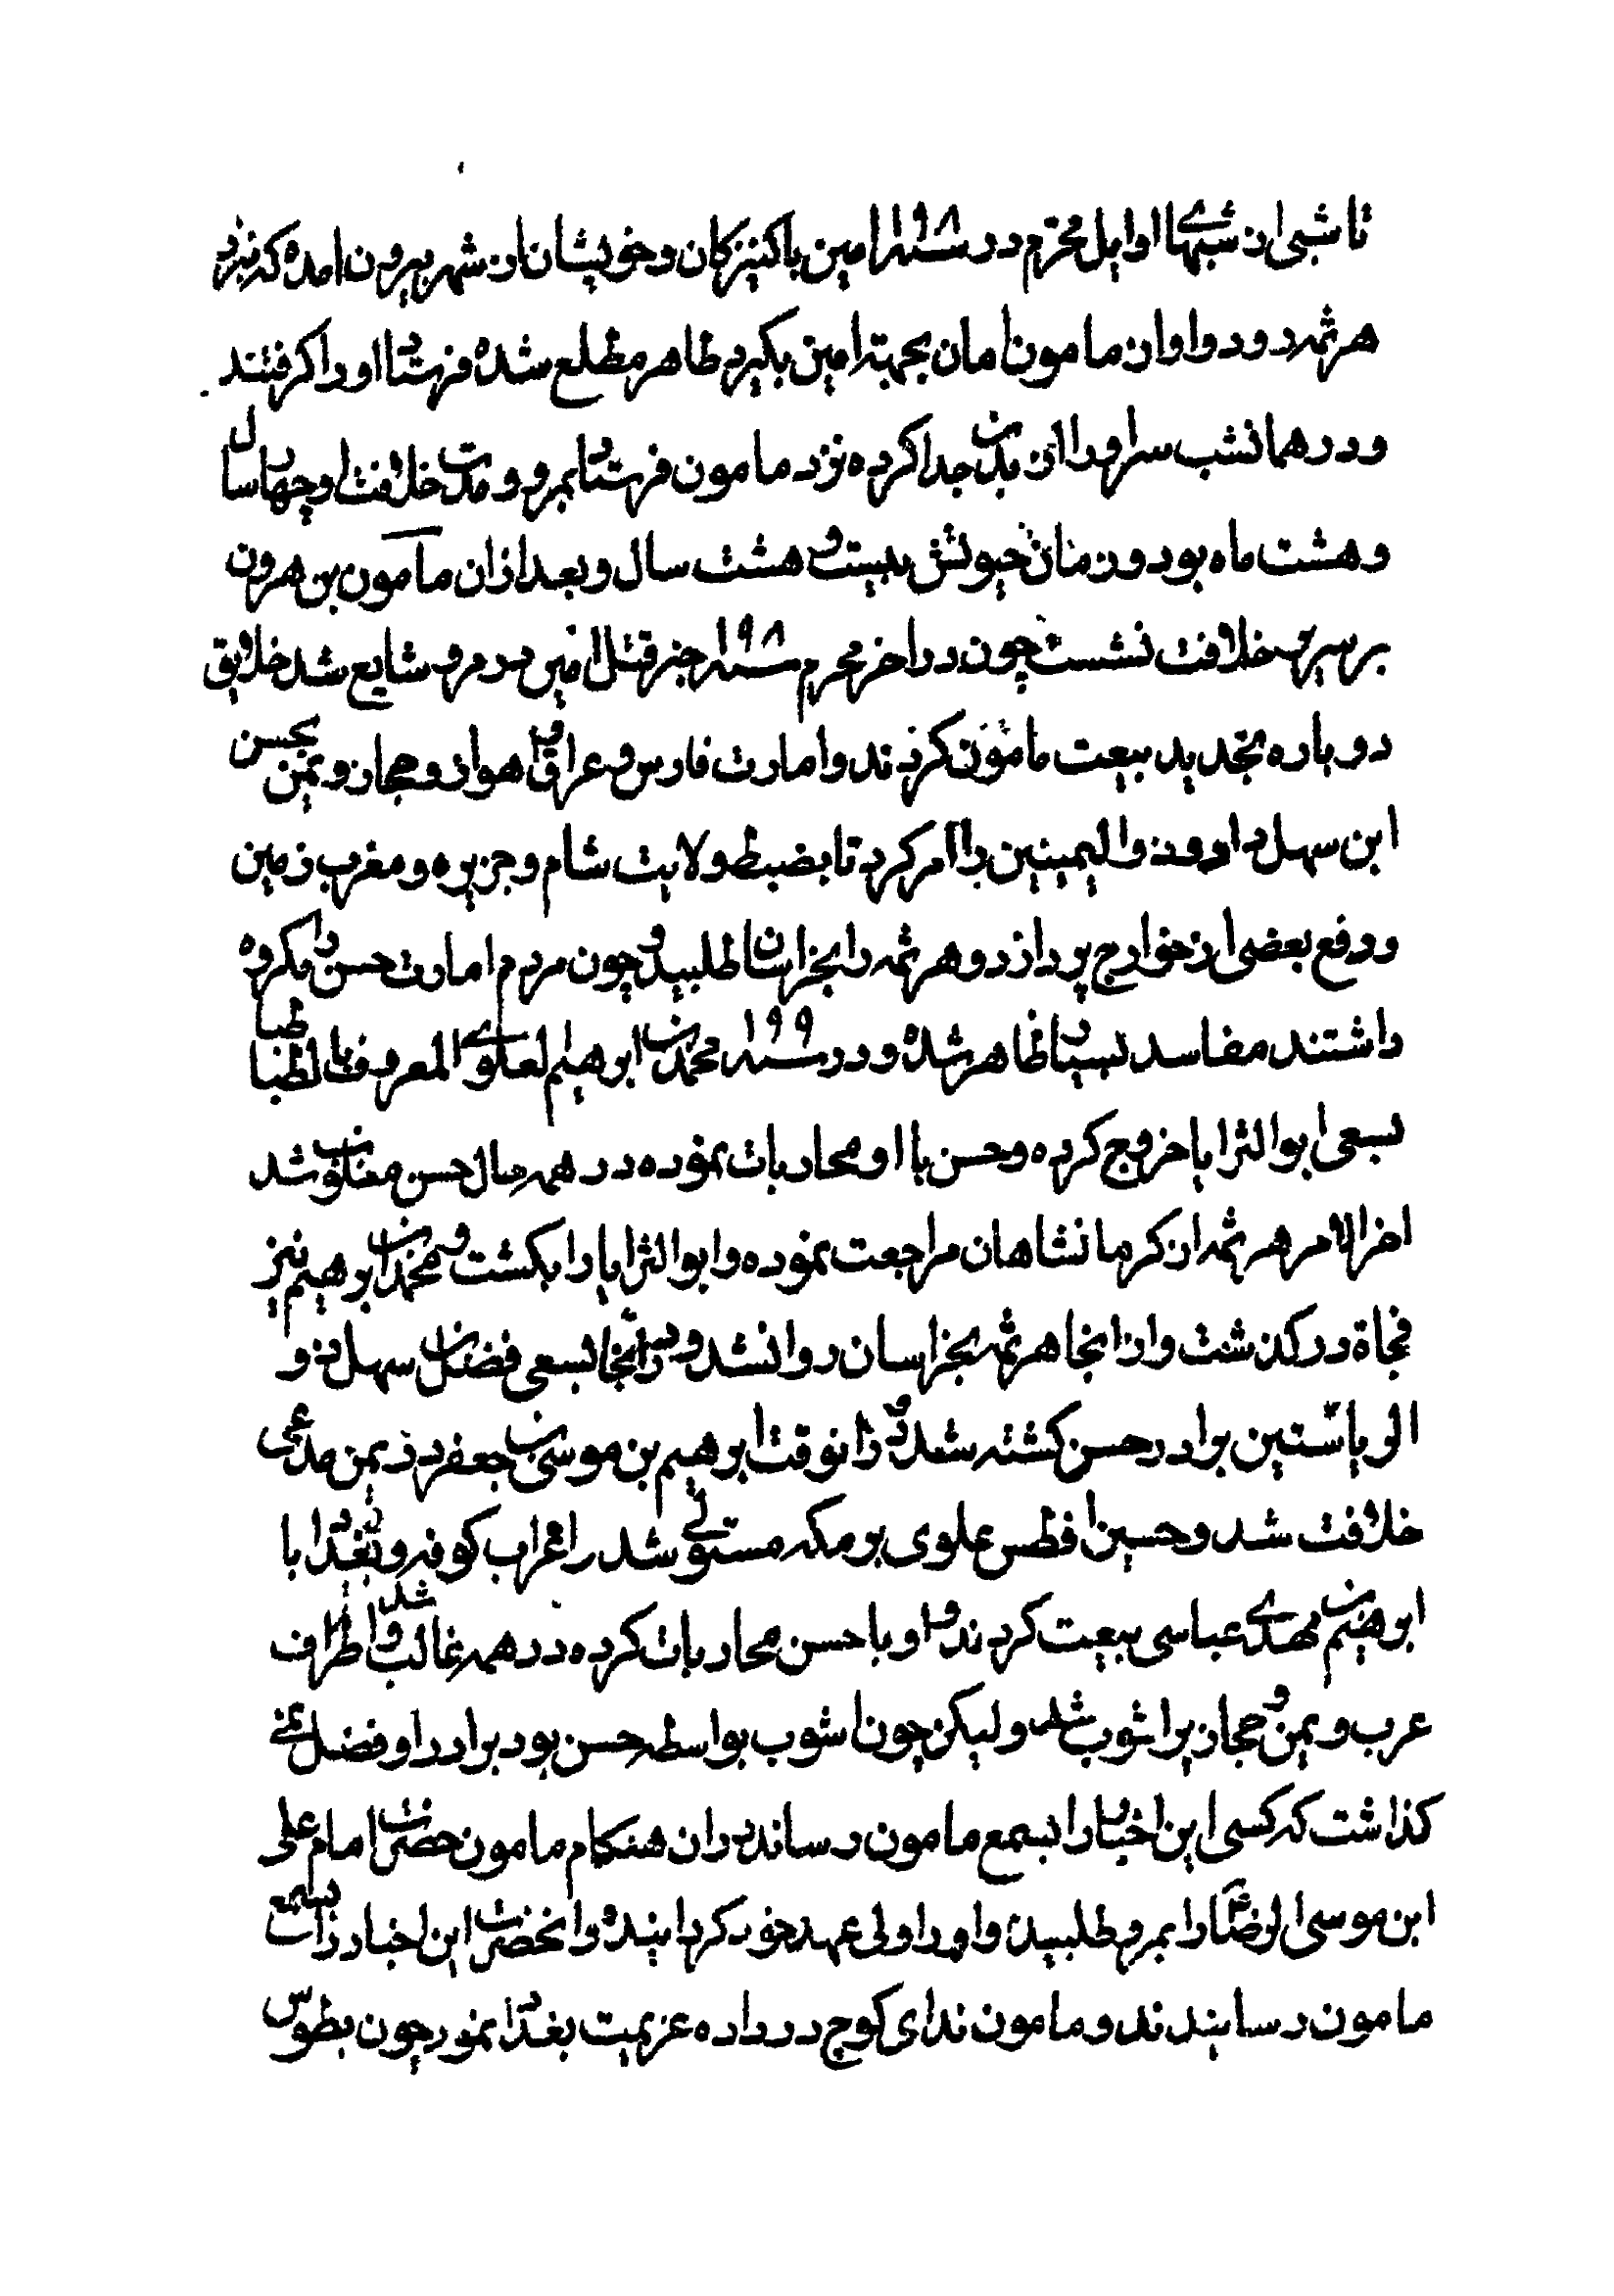 تا شبی از شبهاا اوایل محرم در سنه ۱۹۸ امین با کنیزکان و خویشان از شهر بیرون امده که نزد
هرثمه رود و او از مامون امان بجهته امین بکیرد طاهر مطلع شده فرستاد او را کرفتند
و در همانشب سر او را از بدن جدا کرده نزد مامون فرستاد بمرو و مدت خلافت او چهار سال
و هشت ماه بود و زمان حیوتش بیست و هشت سال و بعد از ان مامون بن هرون
بر سریر خلافت نشست چون در اخر محرم سنه ۱۹۸ خبر قتل امین در مرو شایع شد خلایق
دوباره تجدید بیعت مامون کردند و امارت فارس و عراق و اهواز و حجاز و یمن بحسن
ابن سهل داد و ذوالیمینین را امر کرد تا بضبط ولایت شام و جزیره و مغرب زمین
و دفع بعضی از خوارج پردازد و هرثمه را بخراسان طلبید و چون مردم امارت حسن را مکروه
داشتند مفاسد بسیار ظاهر شده و در سنه ۱۹۹ محمد بن ابرهیم لعلوی المعروف بابن طباطبا
بسعی ابوالثرایا خروج کرده و حسن باا او محاربات نموده در همه حال حسن مغلوب شد
اخر الامر هرثمه از کرمانشاهان مراجعت نموده و ابوالثرایا را بکشت و محمد بن ابرهیم نیز
فجاة درکذشت و از انجا هرثمه بخراسان روانشد و در انجا بسعی فضل بن سهل ذو
الریاستین برادر حسن کشته شد و در انوقت ابرهیم بن موسی بن جعفر در یمن مدعی
خلافت شد و حسین افطس علوی بر مکه مستولی شد و اعراب کوفه و بغداد با
ابرهیم بن مهدی عباسی بیعت کردند و او با حسن محاربات کرده در همه غالب شد و اطراف
عرب و یمن و حجاز پر اشوب شد و لیکن چون اشوب بواسطه حسن بود برادر او فضل نمی
کذاشت که کسی این اخبار را بسمع مامون رساند در ان هنکام مامون حضرت امام علی
ابن موسی الرضا را بمرو طلبیده و او را ولی عهد خود کردانیده و انحضرت این اخبار را بسمع
مامون رسانیدند و مامون ندای کوچ در داده عزیمت بغداد نمود چون بطوس